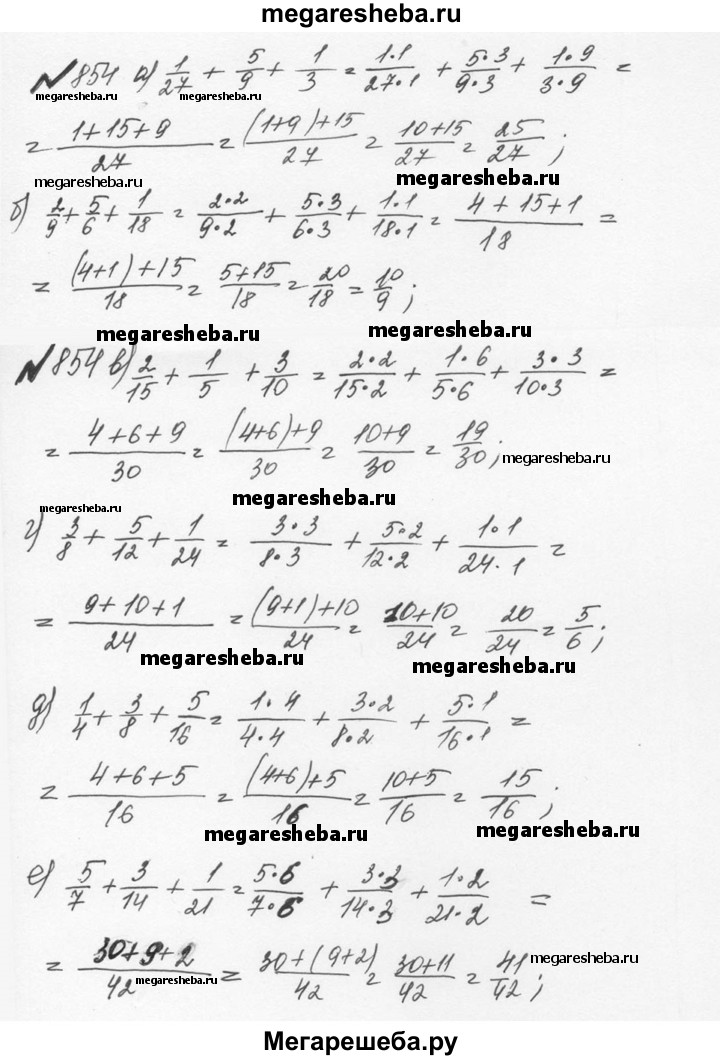 megaresheba.ru
№854 а) 1/27 + 5/9 + 1/3 = 1·1/27·1 + 5·3/9·3 + 1·9/3·9 =
megaresheba.ru megaresheba.ru
= 1+15+9/27 = (1+9)+15/27 = 10+15/27 = 25/27;
megaresheba.ru megaresheba.ru
б) 2/9 + 5/6 + 1/18 = 2·2/9·2 + 5·3/6·3 + 1·1/18·1 = 4+15+1/18 =
= (4+1)+15/18 = 5+15/18 = 20/18 = 10/9;
megaresheba.ru megaresheba.ru
№854 в) 2/15 + 1/5 + 3/10 = 2·2/15·2 + 1·6/5·6 + 3·3/10·3 =
= 4+6+9/30 = (4+6)+9/30 = 10+9/30 = 19/30; megaresheba.ru
megaresheba.ru megaresheba.ru
г) 3/8 + 5/12 + 1/24 = 3·3/8·3 + 5·2/12·2 + 1·1/24·1 =
= 9+10+1/24 = (9+1)+10/24 = 10+10/24 = 20/24 = 5/6;
megaresheba.ru megaresheba.ru
д) 1/4 + 3/8 + 5/16 = 1·4/4·4 + 3·2/8·2 + 5·1/16·1 =
= 4+6+5/16 = (4+6)+5/16 = 10+5/16 = 15/16;
megaresheba.ru megaresheba.ru
е) 5/7 + 3/14 + 1/21 = 5·6/7·6 + 3·3/14·3 + 1·2/21·2 =
= 30+9+2/42 = 30+(9+2)/42 = 30+11/42 = 41/42; megaresheba.ru
megaresheba.ru megaresheba.ru
Мегарешеба.ру